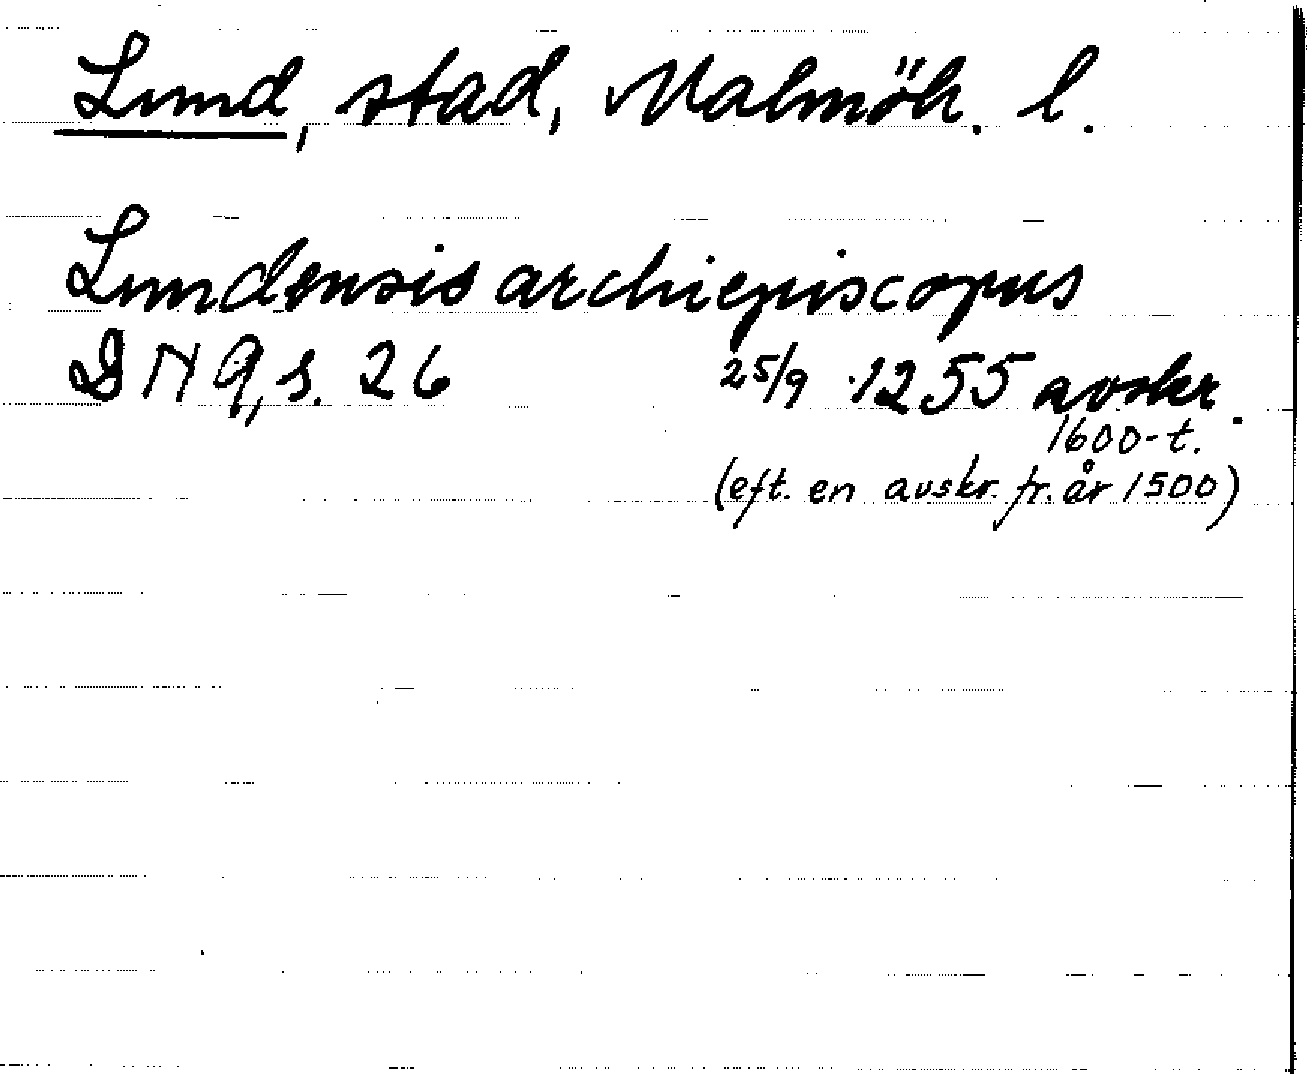 Lund, stad, Malmöh. l.
Lundensis archiepiscopus
DN 9, s. 26 25/9 1255 avskr.
1600-t.
(eft. en avskr. fr. år 1500)